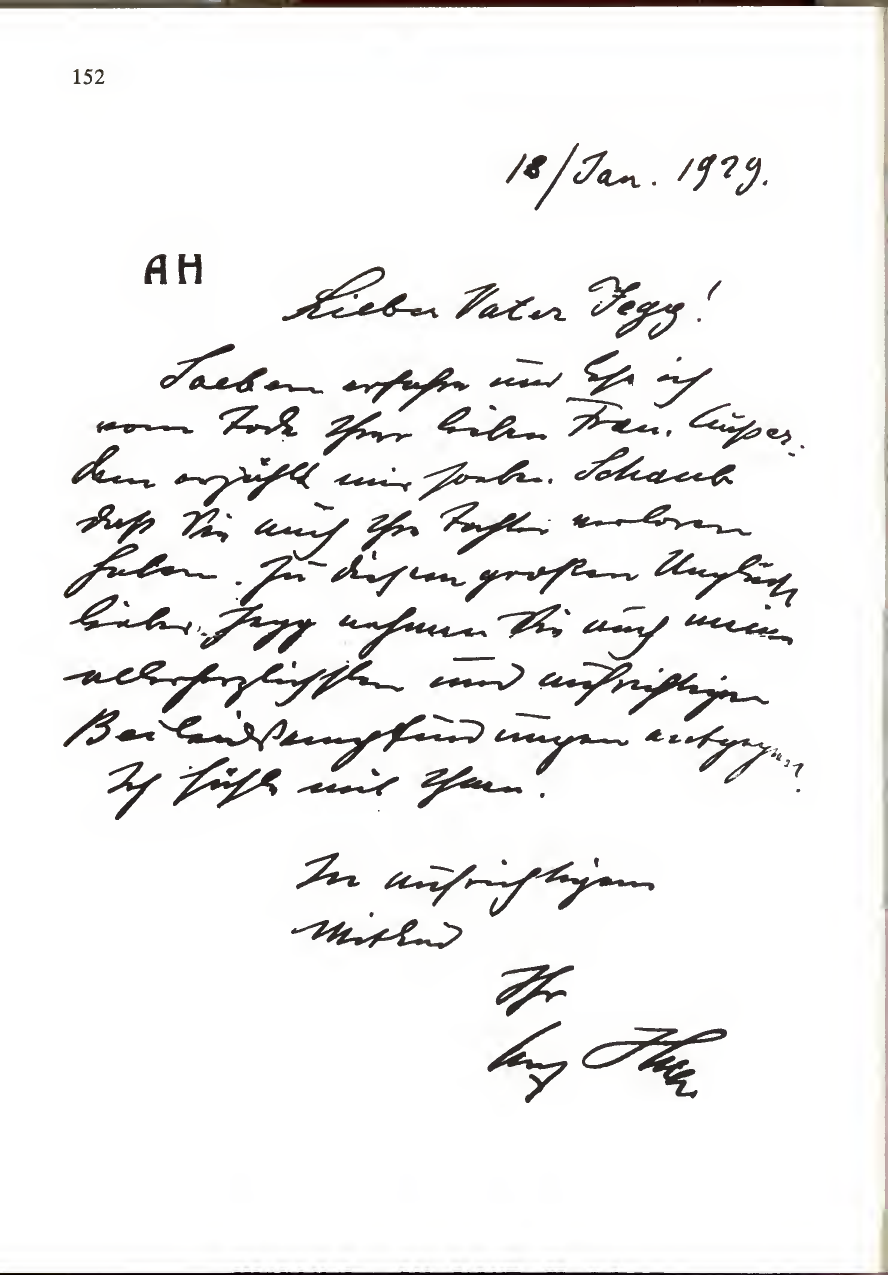 152
18/Jan. 1929.
AH
Lieber Vater Jegg!
Soeben erfahre und lese ich
vom Tode Ihrer lieben Frau. Außer-
dem erzählt mir soeben Schaub
daß Sie auch Ihre Tochter verloren
haben. Zu diesem großen Unglück
lieber Jegg nehmen Sie auch meine
allerherzlichsten und aufrichtigen
Beileidsempfindungen entgegen!
Ich fühle mit Ihnen.
In aufrichtigem
Mitleid
Ihr